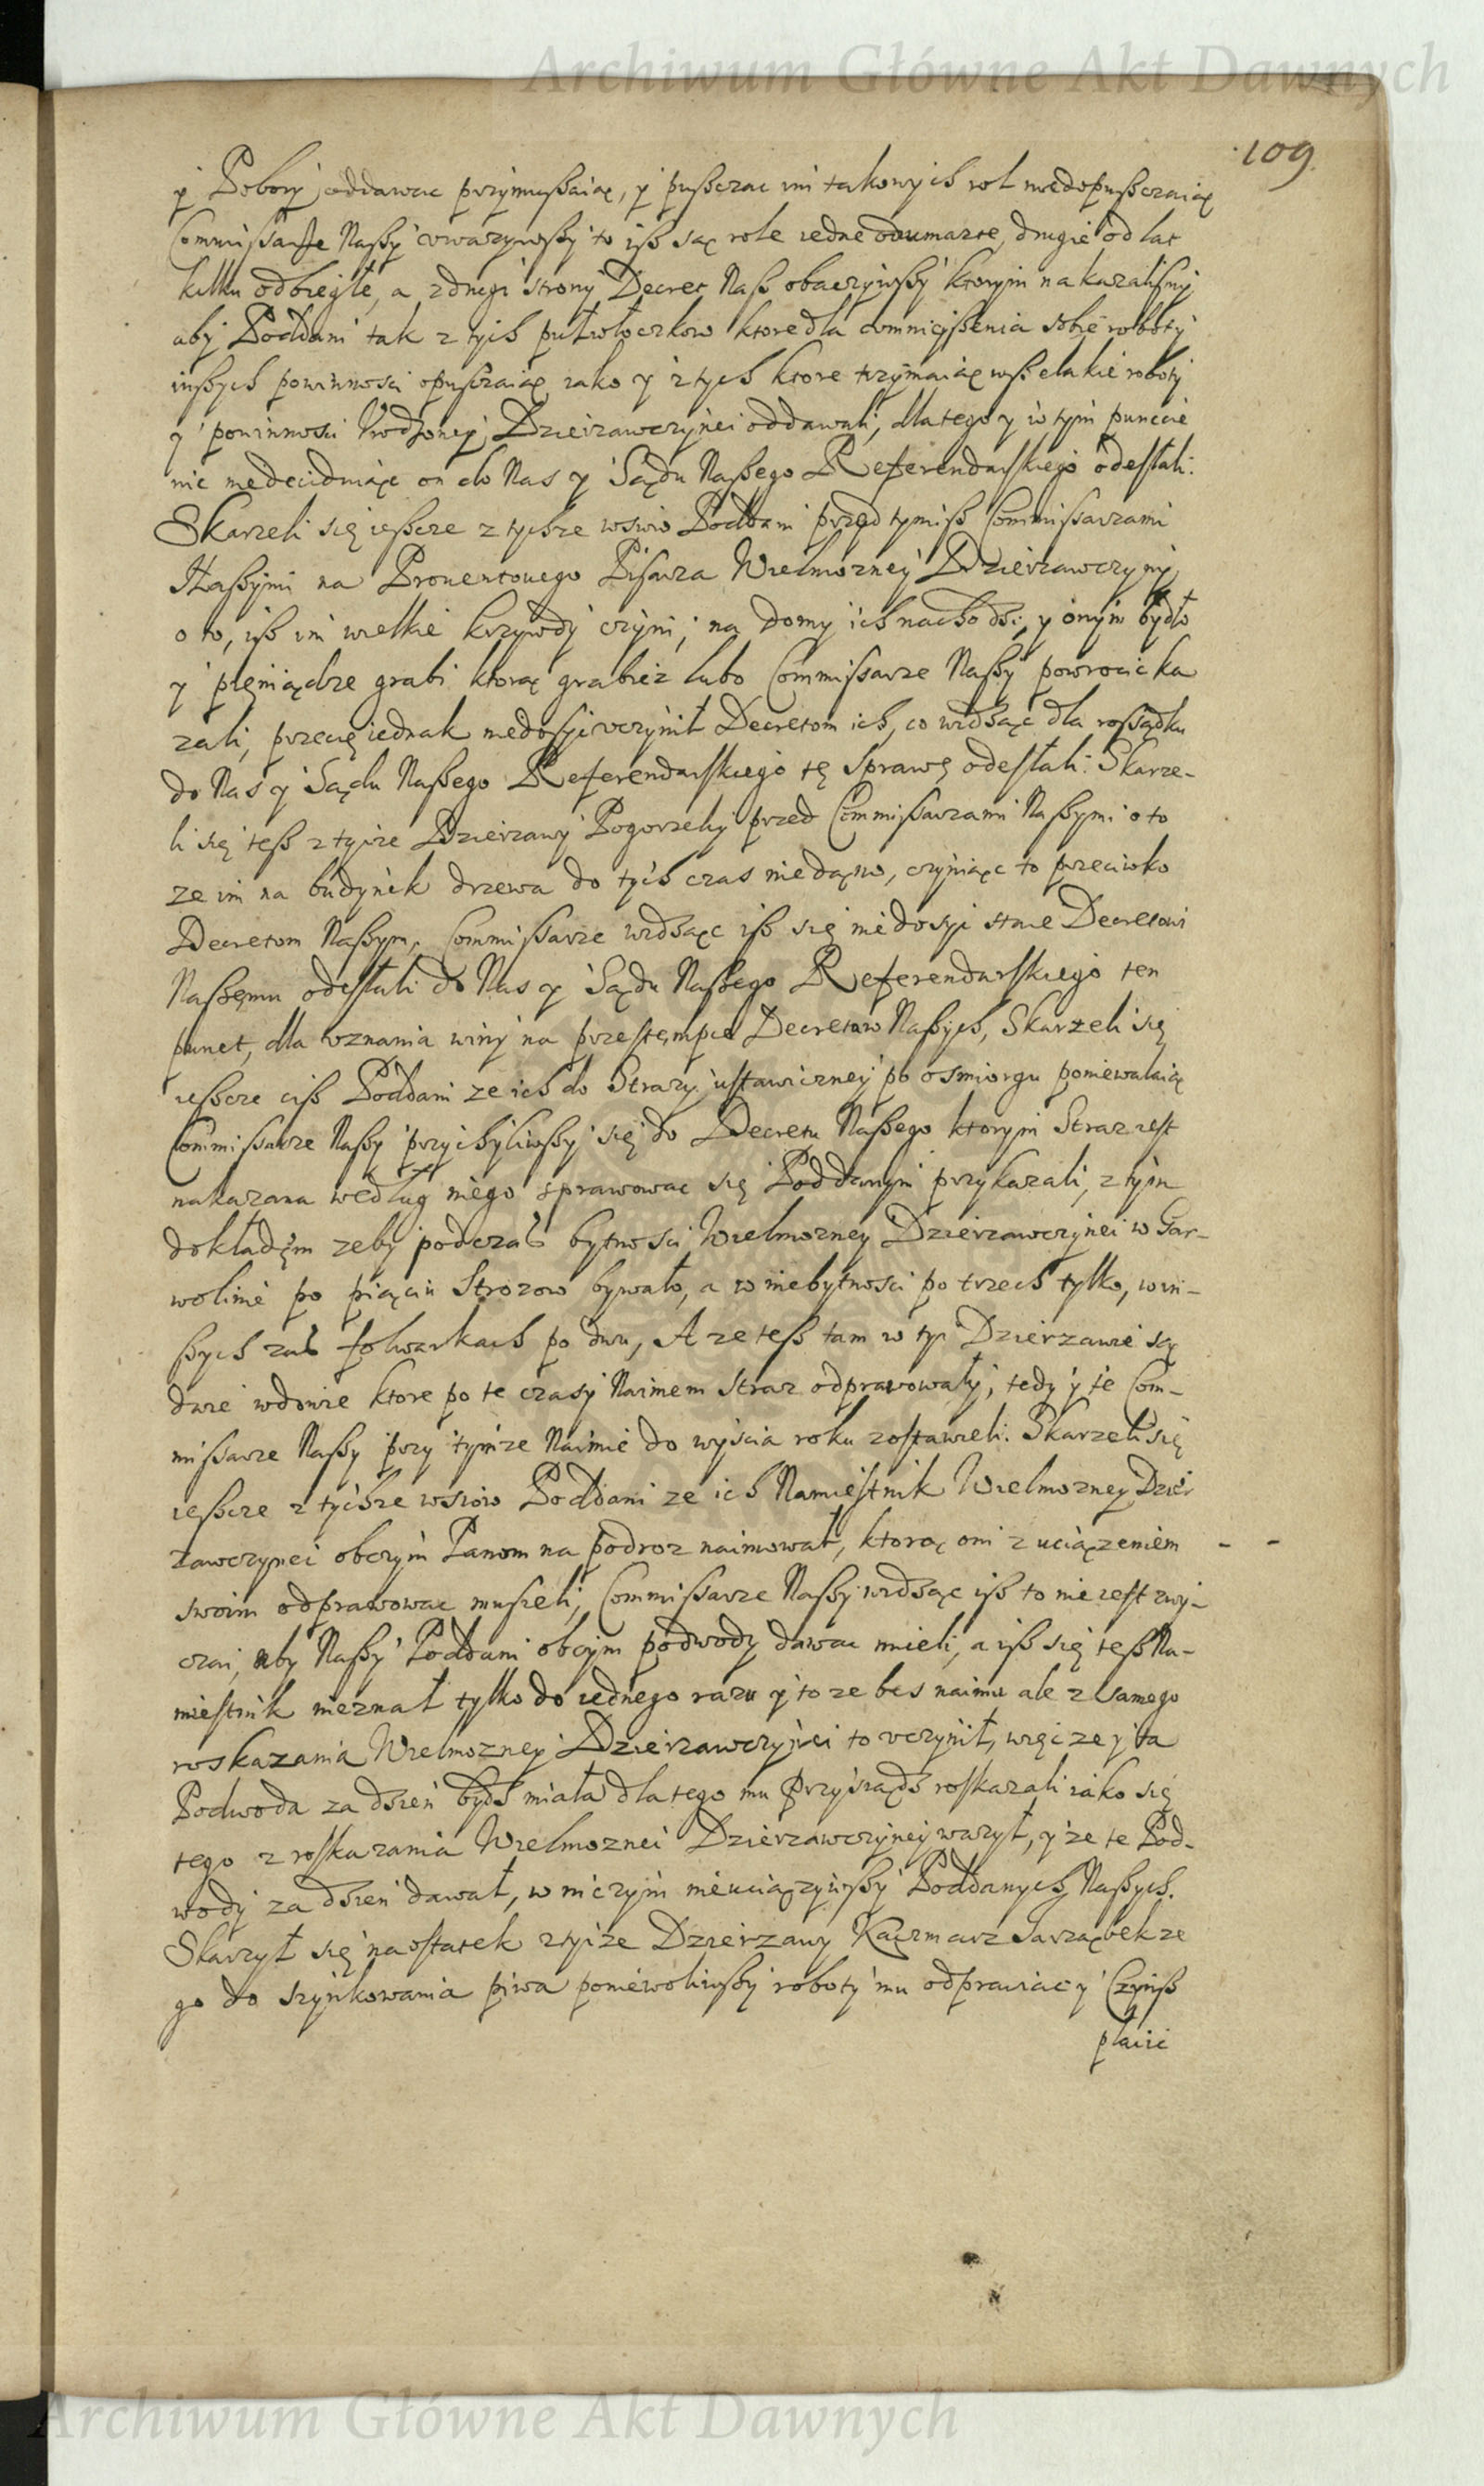 Archiwum Główne Akt Dawnych
109.
y Pobory oddawac przymuszaiąc, y puszczac im takowych rol niedopuszczaiąc
Commissarze Naszy uwazywszy to isz są role iedne odumarte, drugie od lat
kilku odbiegłe, a z drugi strony Decret Nasz obaczywszy ktorym nakazalismy
aby Poddani tak z tych putwłoczkow ktore dla umnieyszenia sobie roboty
inszych powinnosci opuszczaią iako y z tych ktore trzymaią wszelakie roboty
y powinnosci Urodzoney Dzierzawczynei oddawali, dlatego y w tym puncie
nic niedecidniąc on do Nas y Sądu Naszego Referendarskiego odesłali.
Skarzeli się ieszcze z tychze wsiow Poddani przed tymisz Commissarzami
Naszymi na Prouentowego Pisarza Wielmozney Dzierzawczyny
o to, isz im wielkie krzywdy czyni, na domy ich nachodzi, y onym bydło
y pięniądze grabi ktorą grabiez lubo Commissarze Naszy powrocic ka
zali, przecię iednak niedosyc uczynił Decretom ich, co widząc dla rossądku
do Nas y Sądu Naszego Referendarskiego tę Sprawę odesłali. Skarze-
li się tesz z tyize Dzierzawy Pogorzely przed Commissarzami Naszymi o to
ze im na budynek drzewa do tych czas niedano, czyniąc to przeciwko
Decretom Naszym, Commissarze widząc isz się niedosyc stało Decretowi
Naszęmu odesłali do Nas y Sądu Naszego Referendarskiego ten
punct, dla uznania winy na przestempce Decretow Naszych, Skarzeli się
ieszcze cisz Poddani ze ich do Strazy ustawiczney po osmiorgu poniewalaią
Commissarze Naszy przychyliwszy się do Decretu Naszego ktorym Straz iest
nakazana według niego sprawowac się Poddanym przykazali, z tym
dokładęm zeby podczas bytnosci Wielmozney Dzierzawczynei w Gar-
wolinie po pięciu Strozow bywało, a w niebytnosci po trzech tylko, w in-
szych zas folwarkach po dwu, A ze tesz tam w tyi Dzierzawie są
dwie wdowie ktore po te czasy Naimem straz odprawowały, tedy y te Com-
missarze Naszy przy tymze Naimie do wyscia roku zostawieli. Skarzeli się
ieszcze z tychze wsiow Poddani ze ich Namiestnik Wielmozney Dzier
zawczynei obcym Panom na podroz naimował, ktorą oni z uciązeniem - -
swoim odprawowac musieli, Commissarze Naszy widząc isz to nie iest zwy-
czai, aby Naszy Poddani obcym podwody dawac mieli, a isz się tesz Na-
miestnik nieznał tylko do iednego razu y to ze bes naimu ale z samego
roskazania Wielmozney Dzierzawczynei to uczynił, więc ze y ta
Podwoda za dzien bydz miała dlatego mu przysiądz roskazali iako się
tego z roskazania Wielmoznei Dzierzawczyney wazył, y ze te Pod-
wody za dzien dawał, w niczym nieuciązywszy Poddanych Naszych.
Skarzył się naostatek z tyize Dzierzawy Kaczmarz Jarząbek ze
go do szynkowania piwa poniewoliwszy roboty mu odprawiac y Czynsz
płacic
Archiwum Główne Akt Dawnych